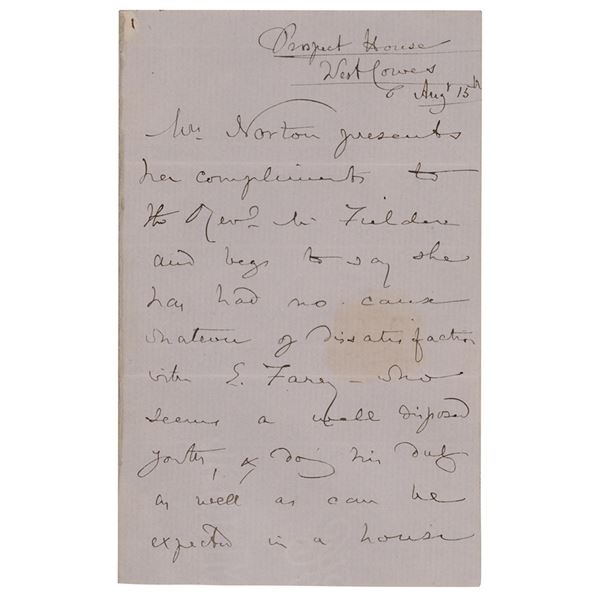 Prospect House
West Cowes
Augt 15th
Mrs Norton presents
her compliments to
the Revd Mr Fielders
and begs to say she
has had no cause
whatever of dissatisfaction
with E. Farey - who
seems a well disposed
youth, & doing his duty
as well as can be
expected in a house